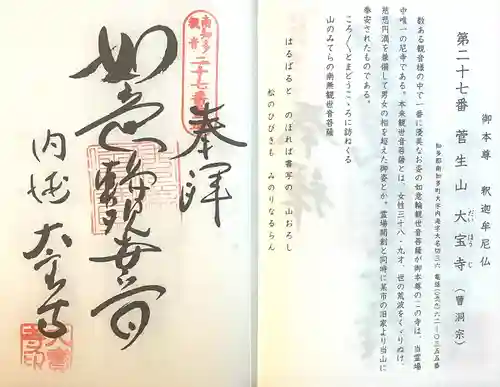 御本尊 釈迦牟尼仏
第二十七番 菅生山 大宝寺(曹洞宗)
だいほうじ
知多郡南知多町大字内海字大名切三六 電話(〇五六九)六二―〇三五五番
数ある観音様の中で一番に優美なお姿の如意輪観世音菩薩が御本尊のこの寺は、当霊場
中唯一の尼寺である。本来観世音菩薩とは、女性三十八・九才、世の荒波をくゞりぬけ、
慈悲円満を兼備して男女の相を超えた御姿とか。霊場開創と同時に某市の旧家より当山に
奉安されたものである。
ころ〳〵とまどうこゝろに訪ねくる
山のみてらの南無観世音菩薩
はるばると のぼれば書写の 山おろし
松のひびきも みのりなるらん
南知多
観音
二十七番
奉拝
如意輪観世音
内海
大宝寺